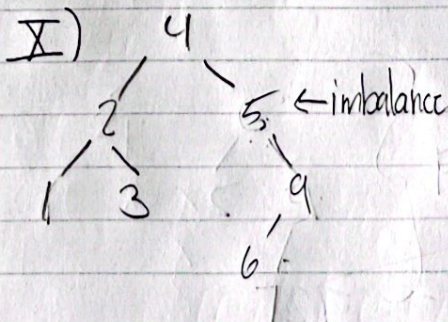 X) 4
2 5 ←imbalance
1 3 9
6